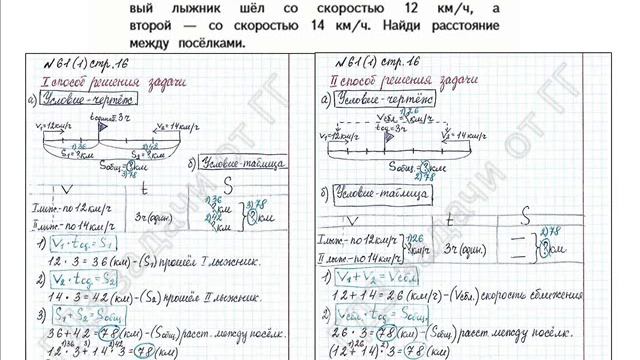 вый лыжник шёл со скоростью 12 км/ч, а
второй — со скоростью 14 км/ч. Найди расстояние
между посёлками.
№61(1) стр.16
I способ решения задачи
а) Условие-чертёж
tодинак.=3ч
V₁=12км/ч V₂=14км/ч
1)36 2)42
S₁=?км S₂=?км
Sобщ=?км
3)78
б) Условие-таблица
V t S
I лыж.-по 12км/ч 3ч(один.) 1)36 ?км 3)78
II лыж.-по 14км/ч 2)42 ?км ?км
1) V₁·tод.=S₁
12·3=36(км)-(S₁) прошёл I лыжник.
2) V₂·tод.=S₂
14·3=42(км)-(S₂) прошёл II лыжник.
3) S₁+S₂=Sобщ
36+42=78(км)-(Sобщ) расст. между посёлк.
1)36 3) 2)42
12·3+14·3=78(км)
№61(1) стр.16
II способ решения задачи
а) Условие-чертёж
1)26
Vсбл.=?км/ч
V₁=12км/ч tод=3ч V₂=14км/ч
Sобщ=?км
2)78
б) Условие-таблица
V t S
I лыж.-по 12км/ч 1)26 3ч(один.) — 2)78
II лыж.-по 14км/ч ? — ?км
1) V₁+V₂=Vсбл
12+14=26(км/ч)-(Vсбл.) скорость сближения
2) Vсбл·tод.=Sобщ
26·3=78(км)-(Sобщ) расст. между посёлк.
1)26 2)
(12+14)·3=78(км)